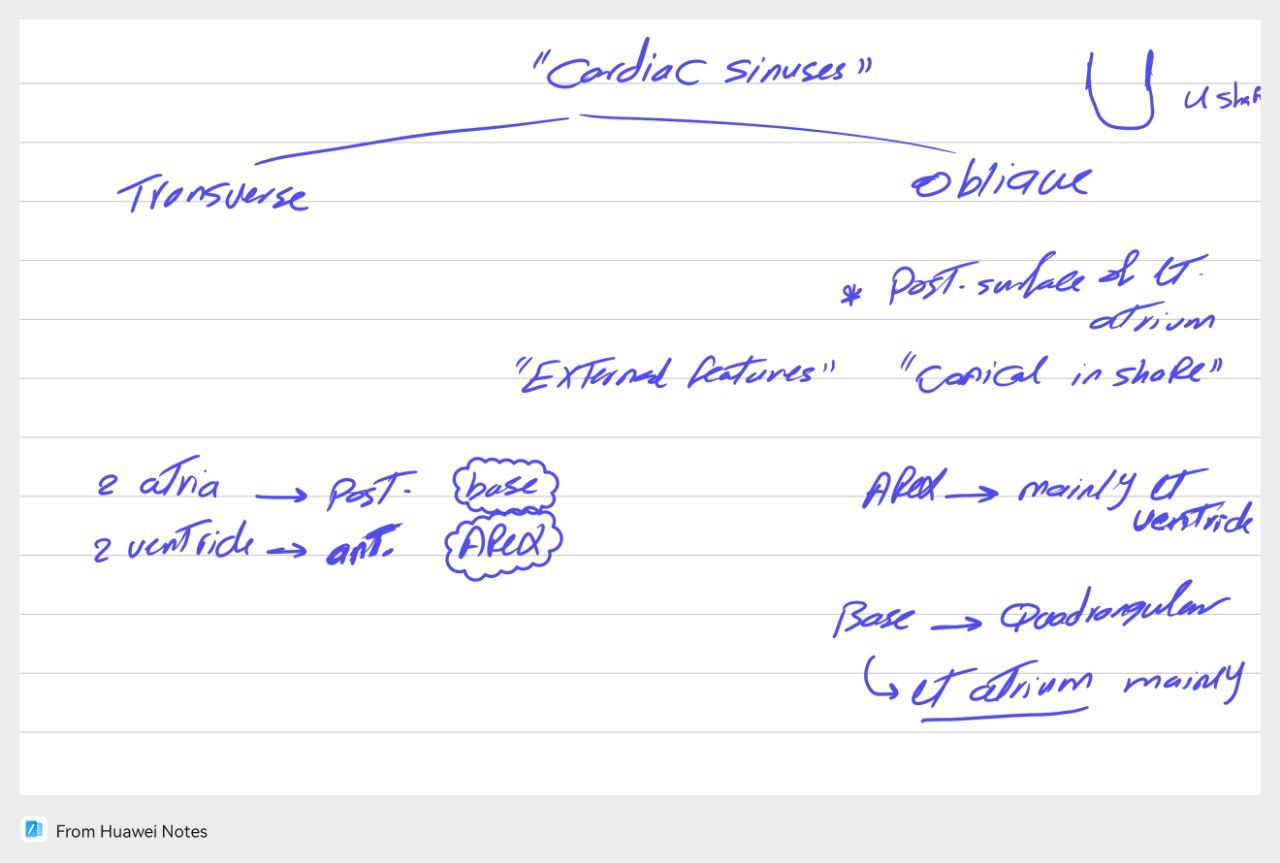 "Cardiac sinuses"
U sha
Transverse
Oblique
* Post. surface of Lt.
atrium
"External features" "Conical in shape"
2 atria → Post. base
2 ventricle → ant. Apex
Apex → mainly Lt
ventricle
Base → Quadrangular
↳ Lt atrium mainly
From Huawei Notes